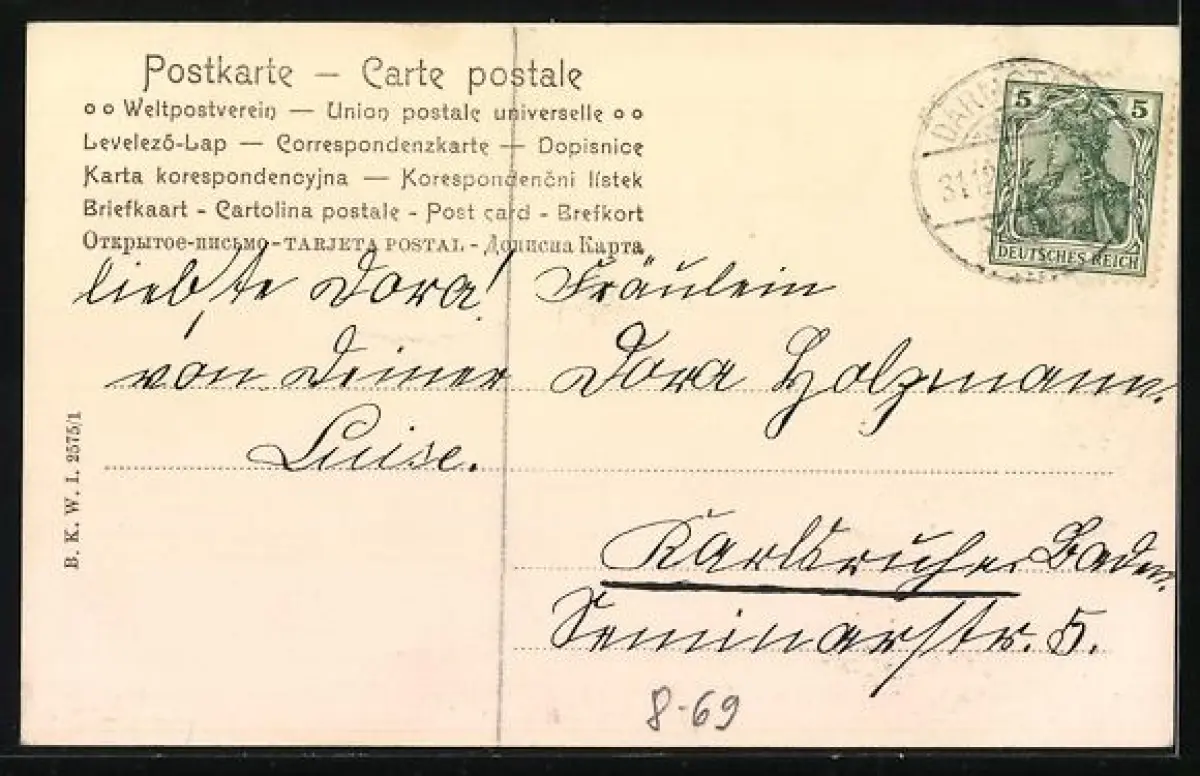 Postkarte — Carte postale
Weltpostverein — Union postale universelle
Levelező-Lap — Correspondenzkarte — Dopisnice
Karta korespondencyjna — Korespondenční lístek
Briefkaart - Cartolina postale - Post card - Brefkort
Открытое-письмо-TARJETA POSTAL - Дописна Карта
liebste Dora!
von Deiner
Luise.
Fräulein
Dora Holzmann.
Karlsruhe Baden.
Seminarstr. 5.
8-69
B. K. W. I. 2575/1
DARMSTA
31.12
5 5
DEUTSCHES REICH